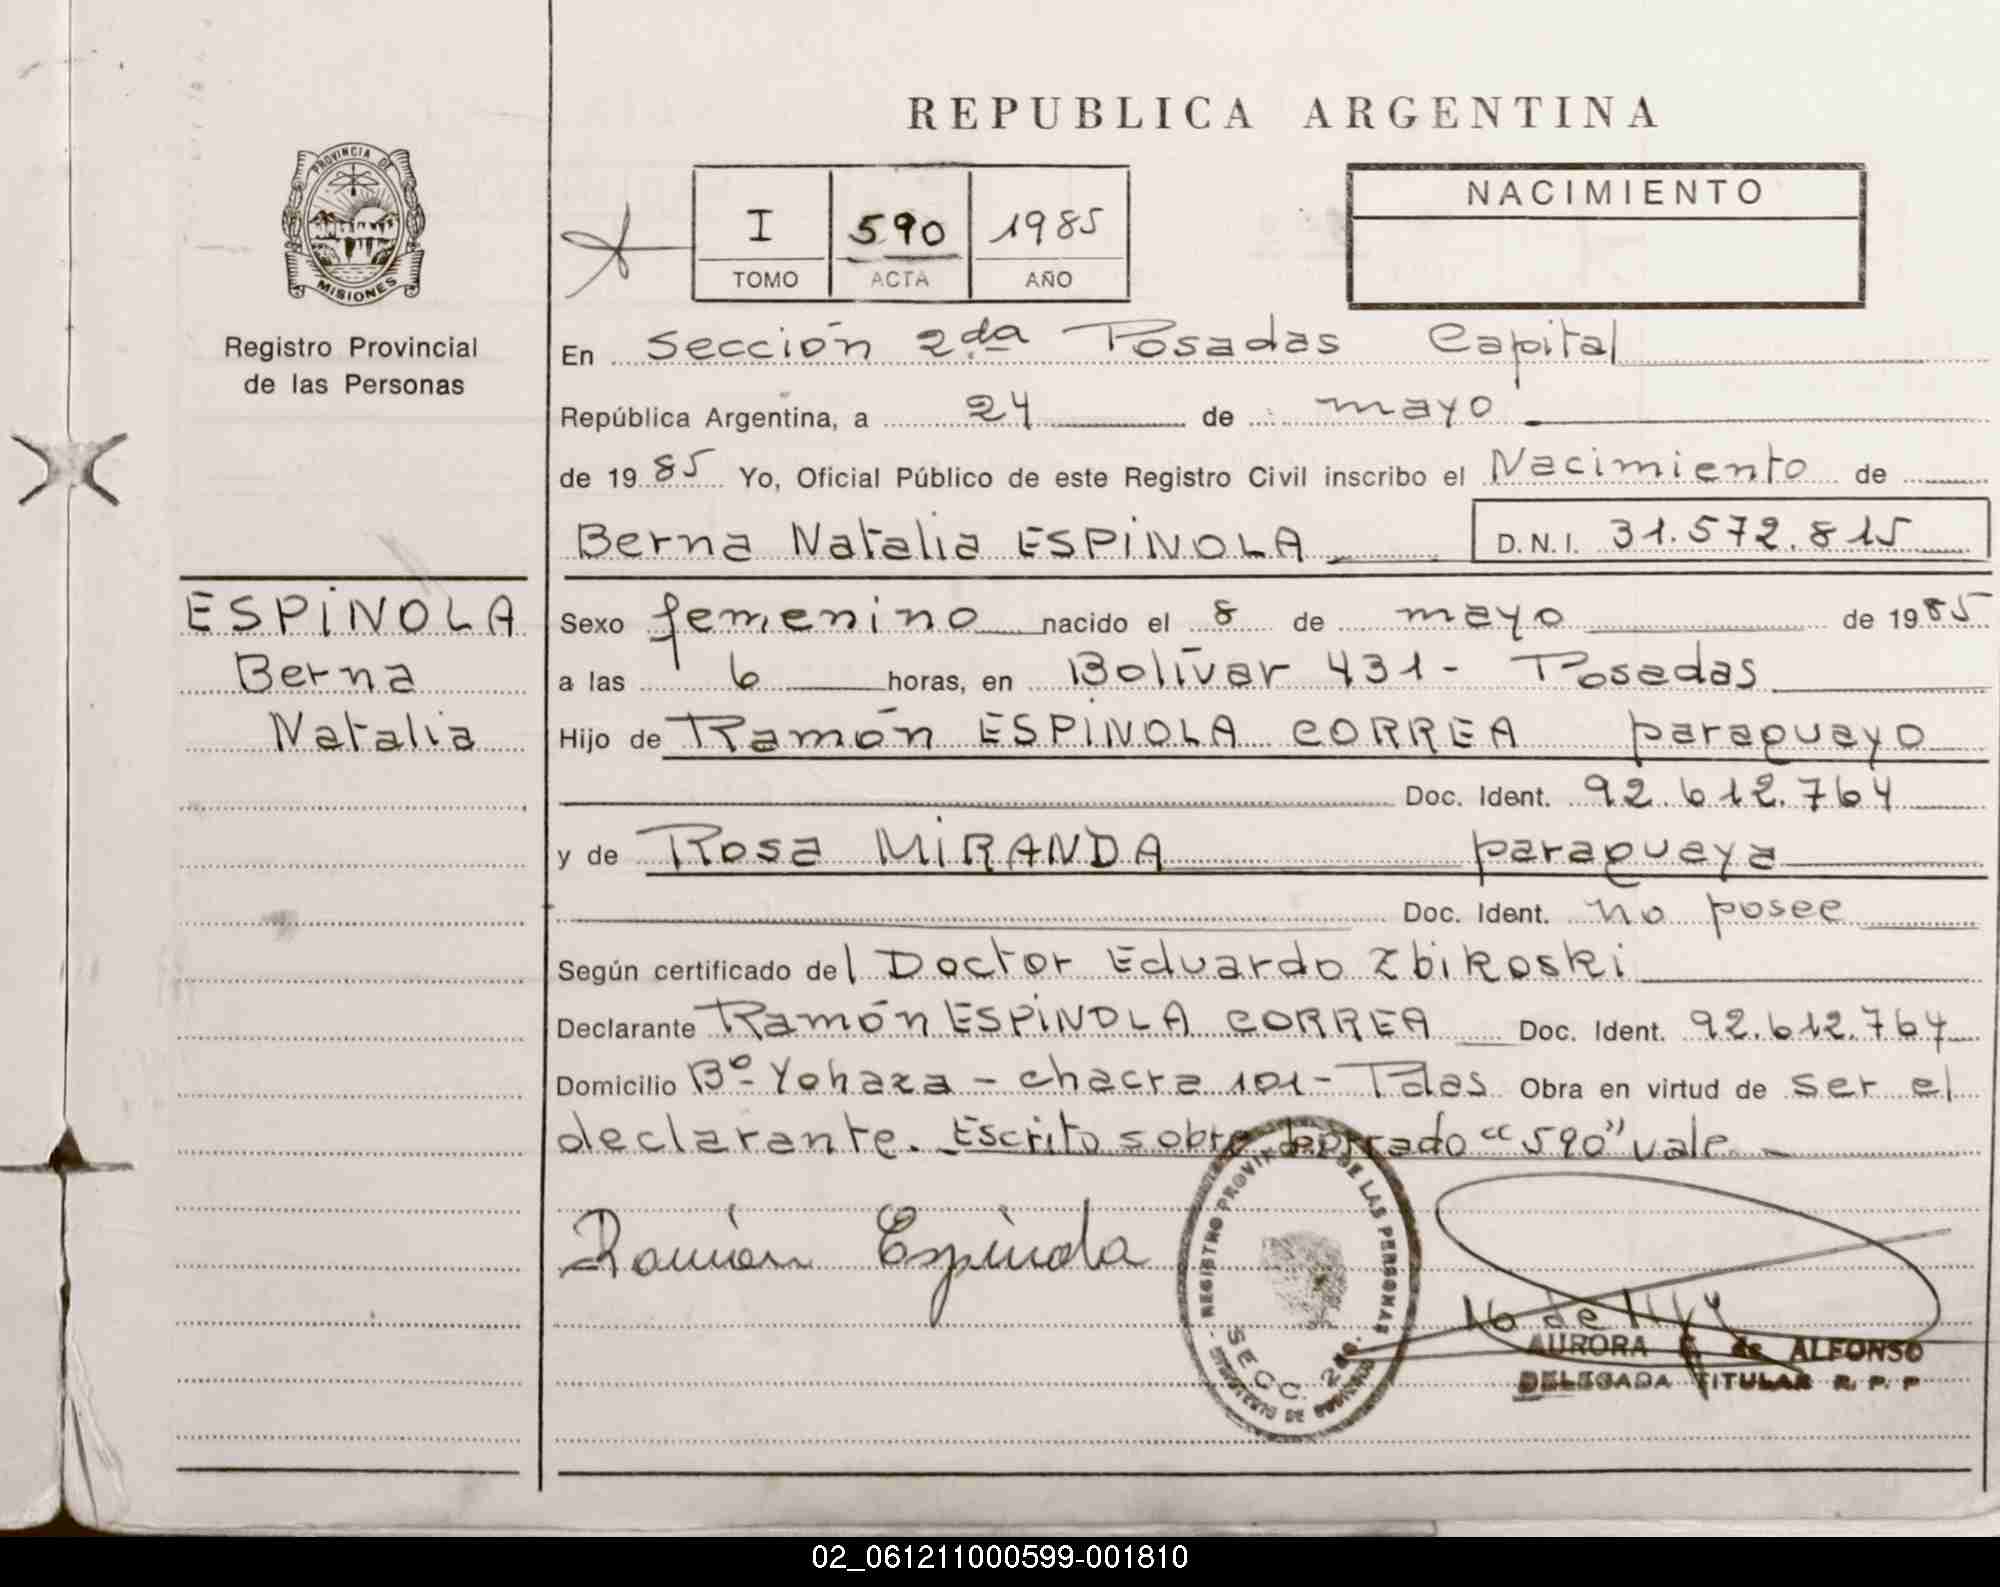 REPUBLICA ARGENTINA
PROVINCIA DE
MISIONES
Registro Provincial
de las Personas
I 590 1985
TOMO ACTA AÑO
NACIMIENTO
En Sección 2da Posadas Capital
República Argentina, a 24 de mayo
de 1985 Yo, Oficial Público de este Registro Civil inscribo el Nacimiento de
Berna Natalia ESPINOLA D.N.I. 31.572.815
ESPINOLA
Berna
Natalia
Sexo femenino nacido el 8 de mayo de 1985
a las 6 horas, en Bolívar 431 - Posadas
Hijo de Ramón ESPINOLA CORREA paraguayo
Doc. Ident. 92.612.764
y de Rosa MIRANDA paraguaya
Doc. Ident. no posee
Según certificado del Doctor Eduardo Zbikoski
Declarante Ramón ESPINOLA CORREA Doc. Ident. 92.612.764
Domicilio Bº Yohasa - chacra 101 - Pdas Obra en virtud de ser el
declarante. Escrito sobre borrado “590” vale. -
Ramón Espinola
REGISTRO PROVINCIAL DE LAS PERSONAS
SECC. 2da.
AURORA de ALFONSO
DELEGADA TITULAR R. P. P
02_061211000599-001810